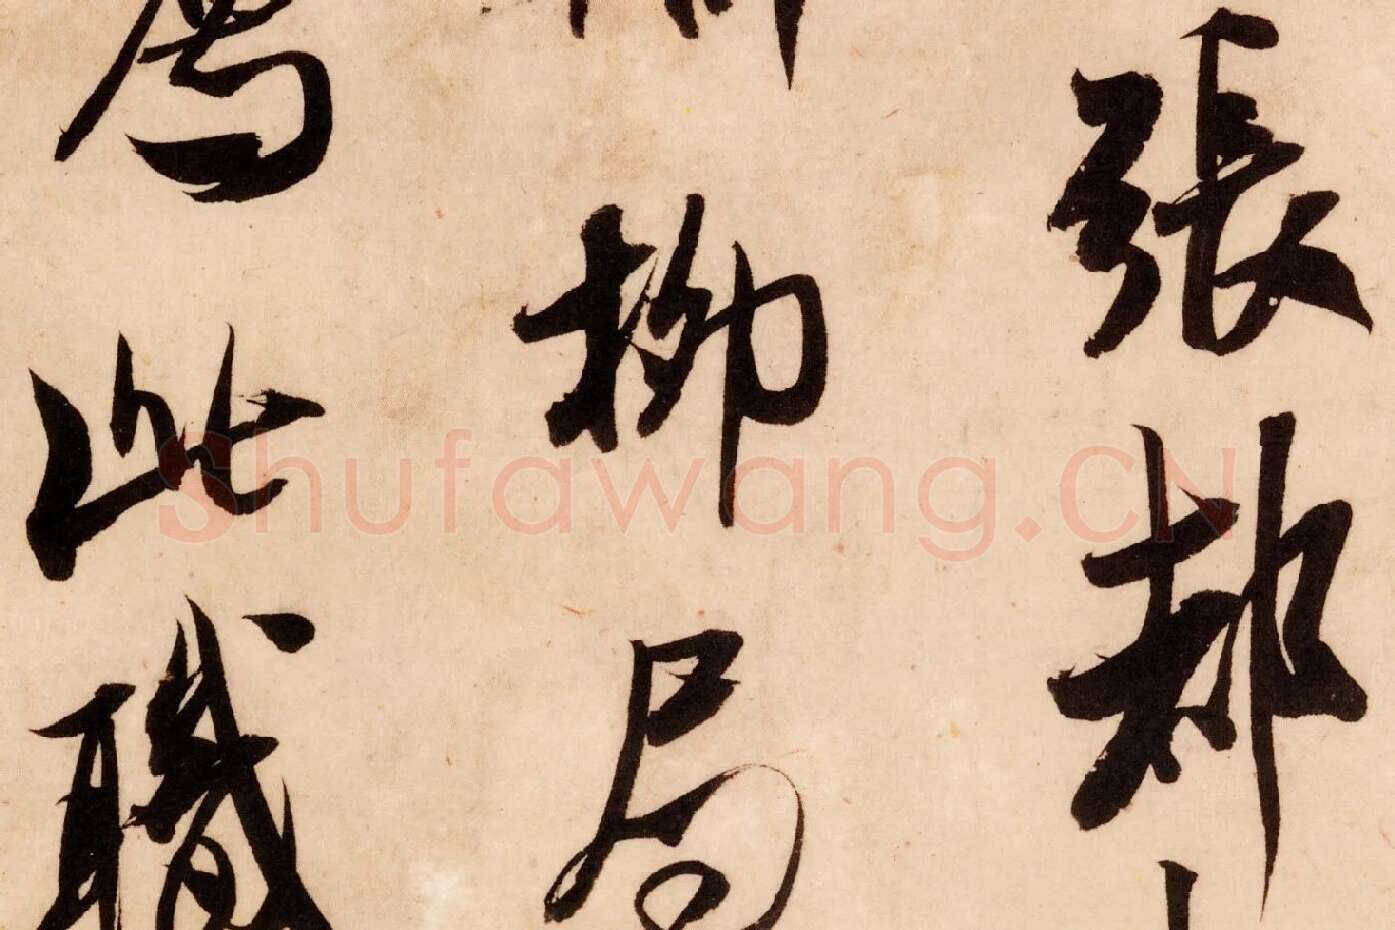 張都
抑局
為此職
Shufawang.CN